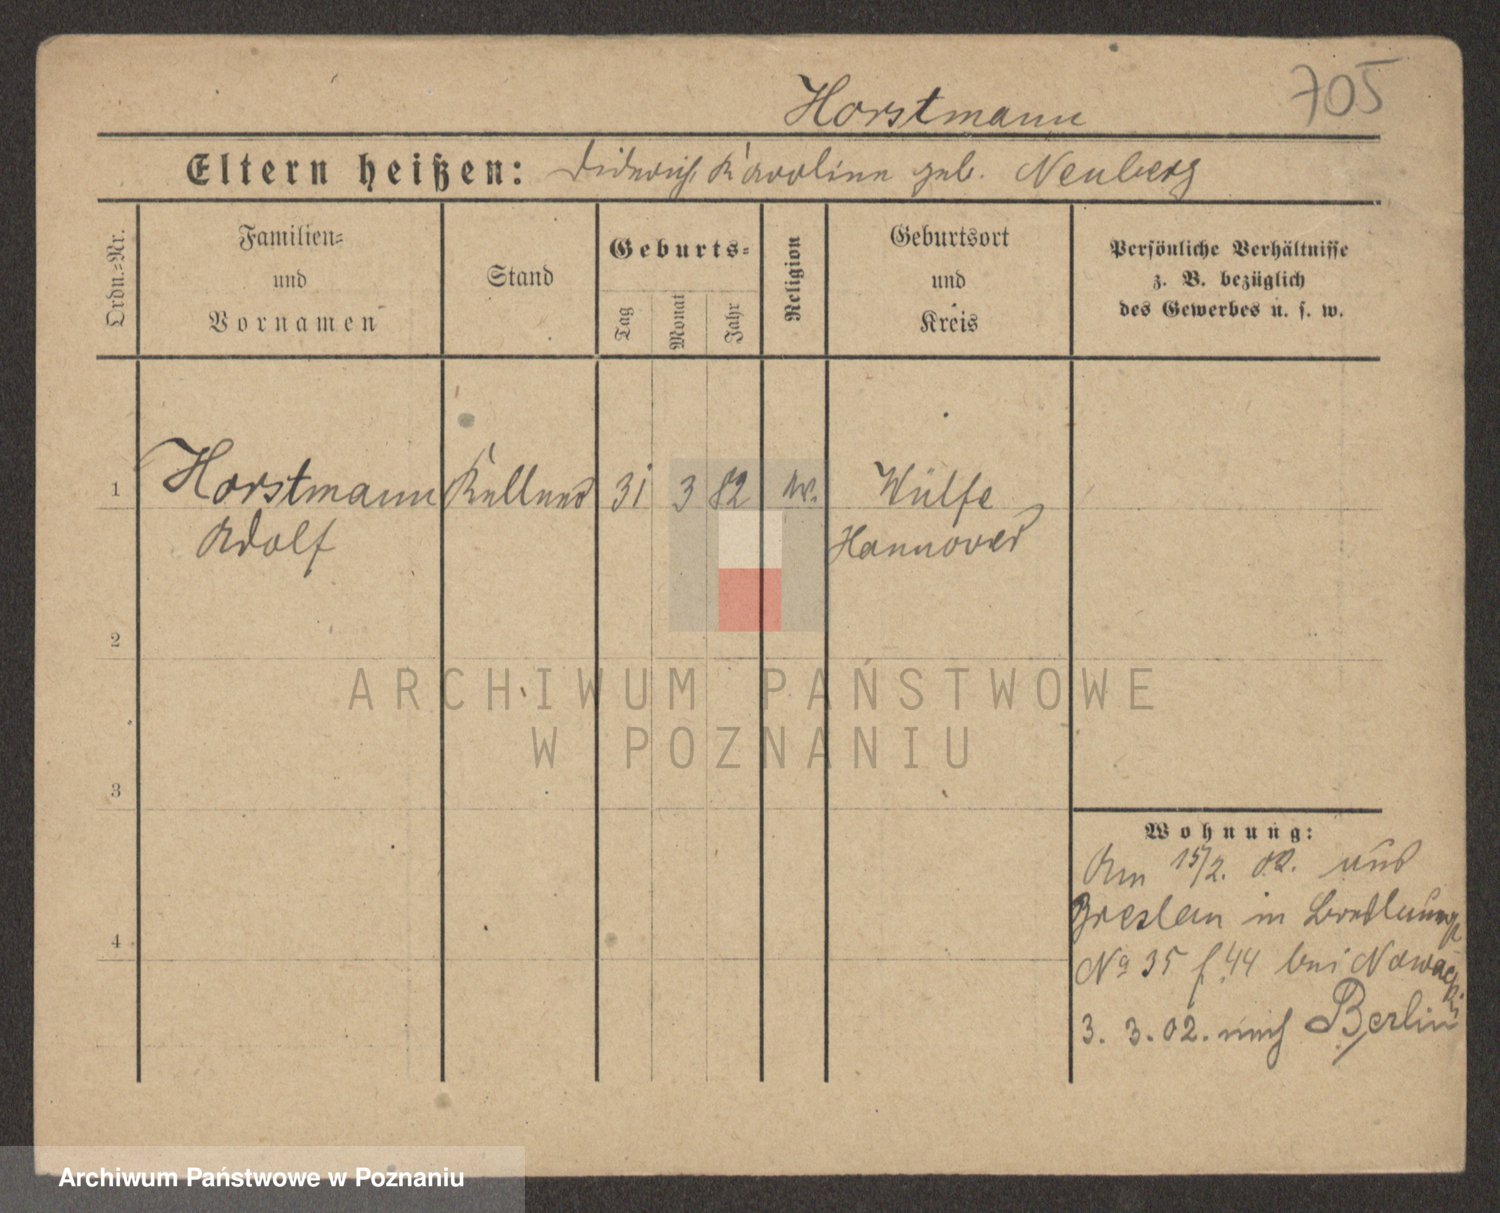 705
Horstmann
Eltern heißen: Diderich, Karoline geb. Neuberg
Ordn.=Nr.
Familien=
und
Vornamen
Stand
Geburts=
Tag
Monat
Jahr
Religion
Geburtsort
und
Kreis
Persönliche Verhältnisse
z. B. bezüglich
des Gewerbes u. s. w.
1 Horstmann Kellner 31 3 82 Wülfe
Adolf Hannover
2
3
4
ARCHIWUM PAŃSTWOWE
W POZNANIU
Wohnung:
Am 15/2. 02. aus
Breslau in
No 35 44 bei Nowacki
3. 3. 02. nach Berlin
Archiwum Państwowe w Poznaniu